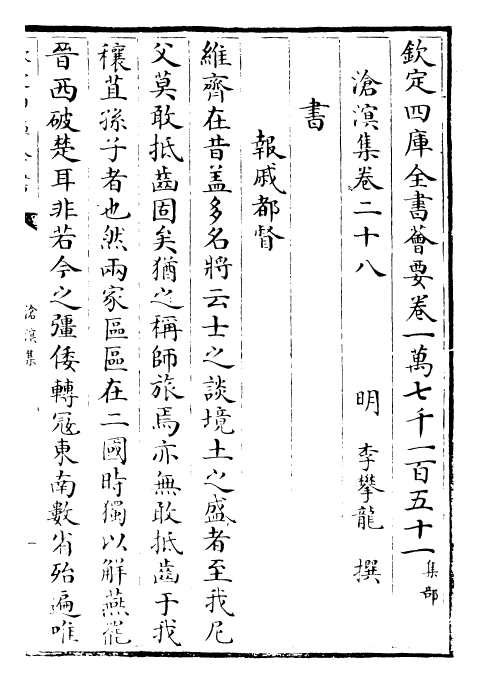 欽定四庫全書薈要卷一萬七千一百五十一集部
滄溟集卷二十八　明　李攀龍　撰
書
報戚都督
維齊在昔蓋多名將云士之談境土之盛者至我尼
父莫敢抵齒固矣猶之稱師旅焉亦無敢抵齒于我
穰苴孫子者也然兩家區區在二國時獨以解燕罷
晉西破楚耳非若今之彊倭轉寇東南數省殆遍唯
滄溟集
一